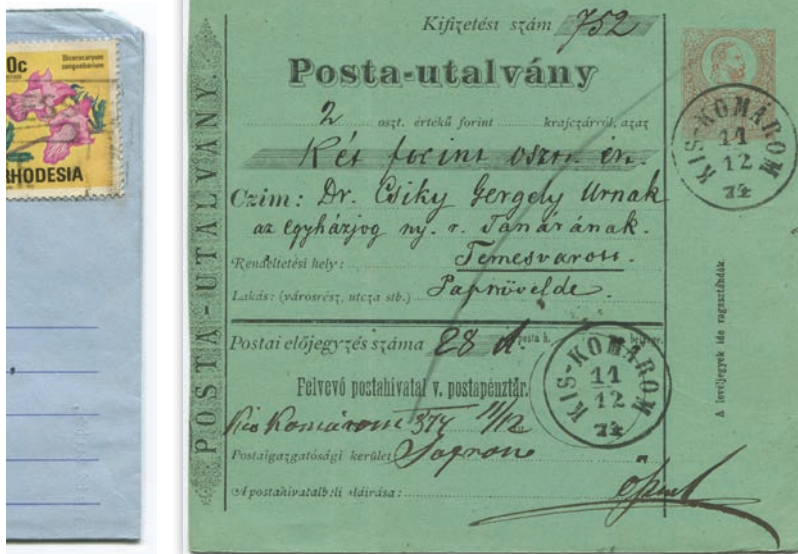 0c
Diceracaryum
zanguebarium
RHODESIA
POSTA-UTALVÁNY.
Kifizetési szám 752
Posta-utalvány
2 oszt. értékű forint krajczárról, azaz
Két forint oszt. ért.
Czim: Dr. Csiky Gergely Urnak
az egyházjog ny. r. Tanárának.
Rendeltetési hely: Temesvárott.
Lakás: (városrész, utcza stb.) Papnövelde.
Postai előjegyzés száma 28
Felvevő postahivatal v. postapénztár.
Kis Komárom 374 11/12
Postaigazgatósági kerület Sopron
A postahivatalbeli aláirása:
KIS-KOMÁROM
11
12
74
KIS-KOMÁROM
11
12
74
A levéljegyek ide ragasztandók.